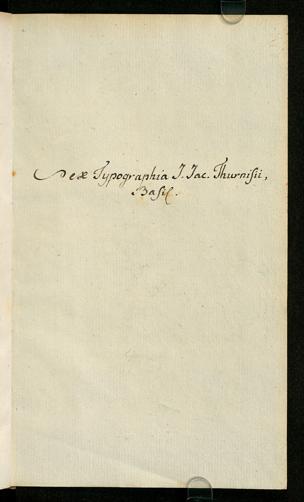 ex Typographia J. Jac. Thurnisii,
Basil.